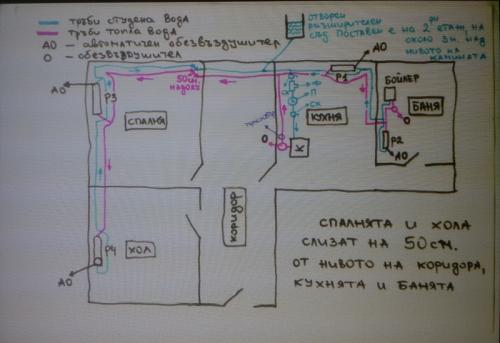 тръби студена вода
тръби топла вода
АО – автоматичен обезвъздушител
О – обезвъздушител
отворен
разширителен
съд поставен е на 2ри етаж, на
около 3м. над
нивото на
камината
АО
50см.
надолу
P1
АО
БОЙЛЕР
БАНЯ
О
P2
АО
АО
P3
СПАЛНЯ
П
СК
КУХНЯ
О
К
коридор
P4
ХОЛ
АО
СПАЛНЯТА И ХОЛА
СЛИЗАТ НА 50см.
ОТ НИВОТО НА КОРИДОРА,
КУХНЯТА И БАНЯТА